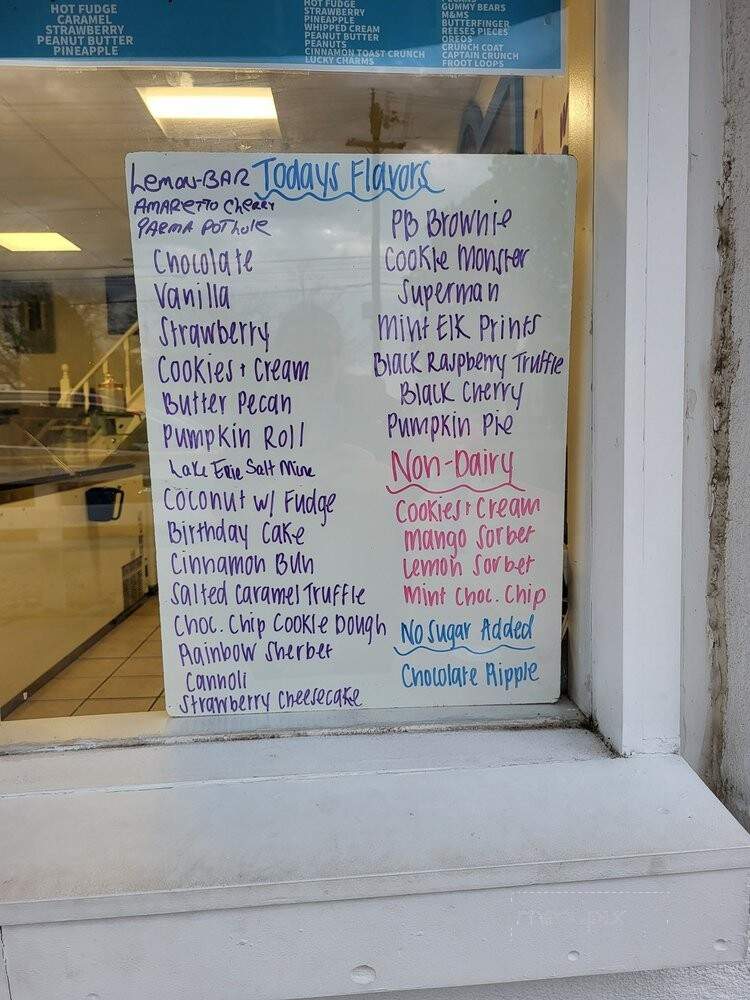 HOT FUDGE
CARAMEL
STRAWBERRY
PEANUT BUTTER
PINEAPPLE
HOT FUDGE
STRAWBERRY
PINEAPPLE
WHIPPED CREAM
PEANUT BUTTER
PEANUTS
CINNAMON TOAST CRUNCH
LUCKY CHARMS
GUMMY BEARS
M&MS
BUTTERFINGER
REESES PIECES
OREOS
CRUNCH COAT
CAPTAIN CRUNCH
FROOT LOOPS
Todays Flavors
LEMON-BAR
AMARETTO CHERRY
PARMA POTHOLE
Chocolate
Vanilla
Strawberry
Cookies + Cream
Butter Pecan
Pumpkin Roll
Lake Erie Salt Mine
Coconut w/ Fudge
Birthday Cake
Cinnamon Bun
Salted Caramel Truffle
Choc. Chip Cookie Dough
Rainbow Sherbet
Cannoli
Strawberry Cheesecake
PB Brownie
Cookie Monster
Superman
Mint Elk Prints
Black Raspberry Truffle
Black Cherry
Pumpkin Pie
Non-Dairy
Cookies + Cream
Mango Sorbet
Lemon Sorbet
Mint Choc. Chip
No Sugar Added
Chocolate Ripple